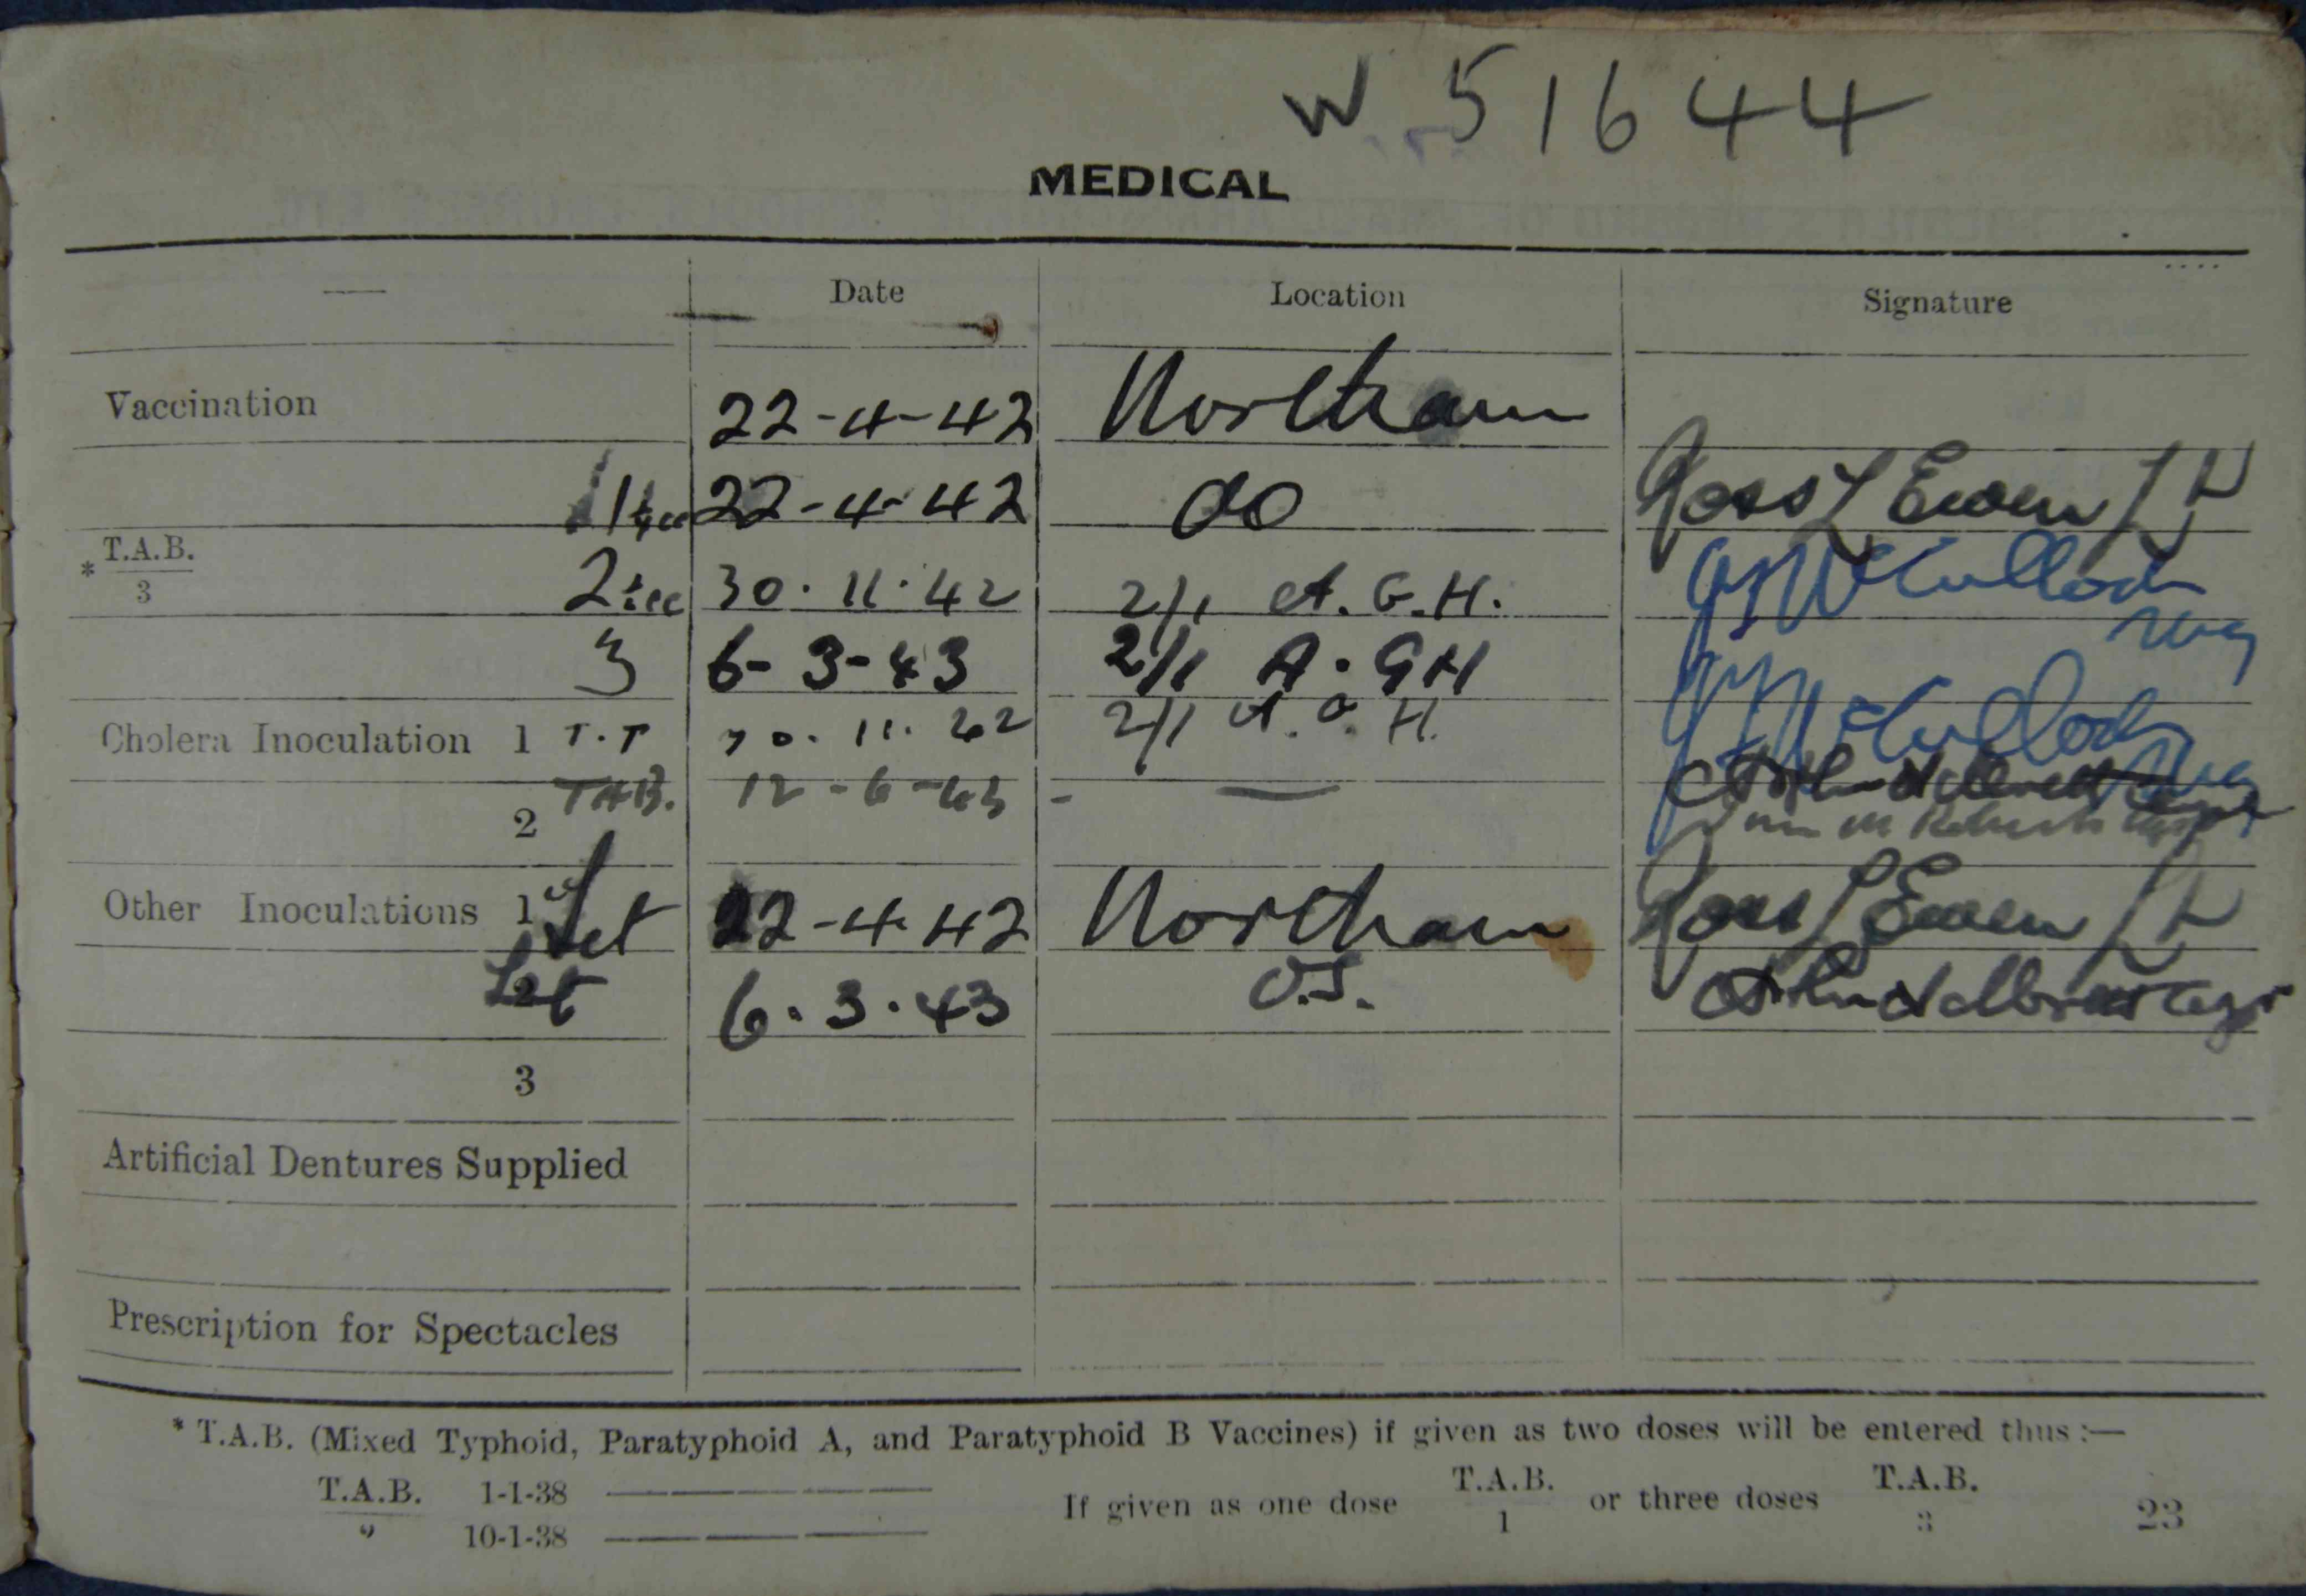 W 51644
MEDICAL
— Date Location Signature
Vaccination 22-4-42 Northam
1 22-4-42 do Ross L Ewen
* T.A.B. 2 30.11.42 2/1 A.G.H. McCulloch
3
3 6-3-43 2/1 A.G.H
Cholera Inoculation 1 T.T 30.11.42 2/1 A.G.H. McCulloch
2 TAB. 12-6-43 - —
Other Inoculations 1 Tet 22-4-42 Northam Ross L Ewen
2 Tet 6.3.43 O.S.
3
Artificial Dentures Supplied
Prescription for Spectacles
* T.A.B. (Mixed Typhoid, Paratyphoid A, and Paratyphoid B Vaccines) if given as two doses will be entered thus :—
T.A.B. 1-1-38 ———— If given as one dose T.A.B. or three doses T.A.B.
" 10-1-38 ———— 1 3 23